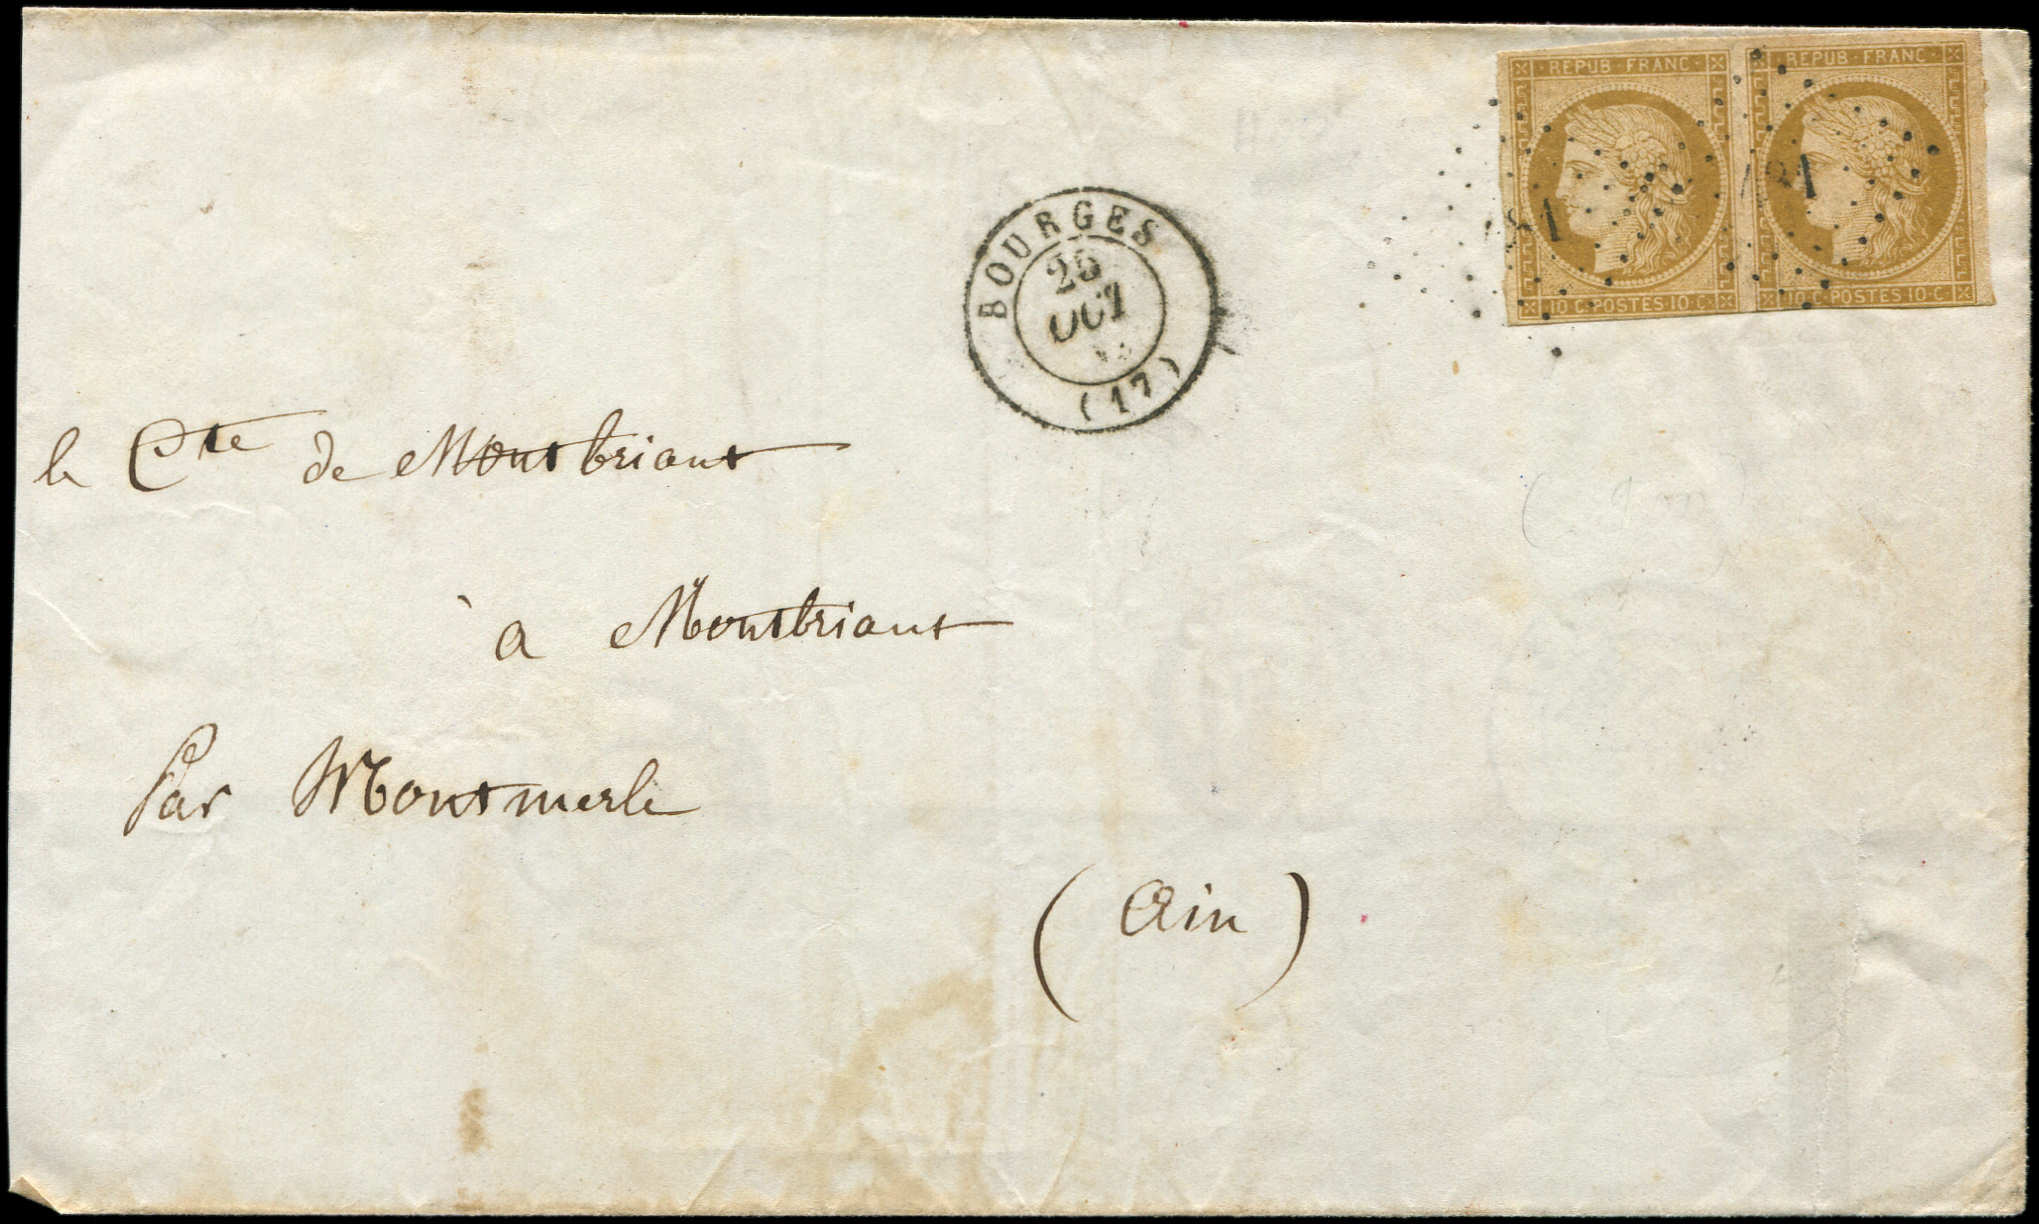 REPUB·FRANC· REPUB·FRANC·
10·C·POSTES 10·C· 10·C·POSTES 10·C·
BOURGES
25
OCT
(17)
le Cte de Montbriant
à Montbriant
Par Montmerle
(Ain)